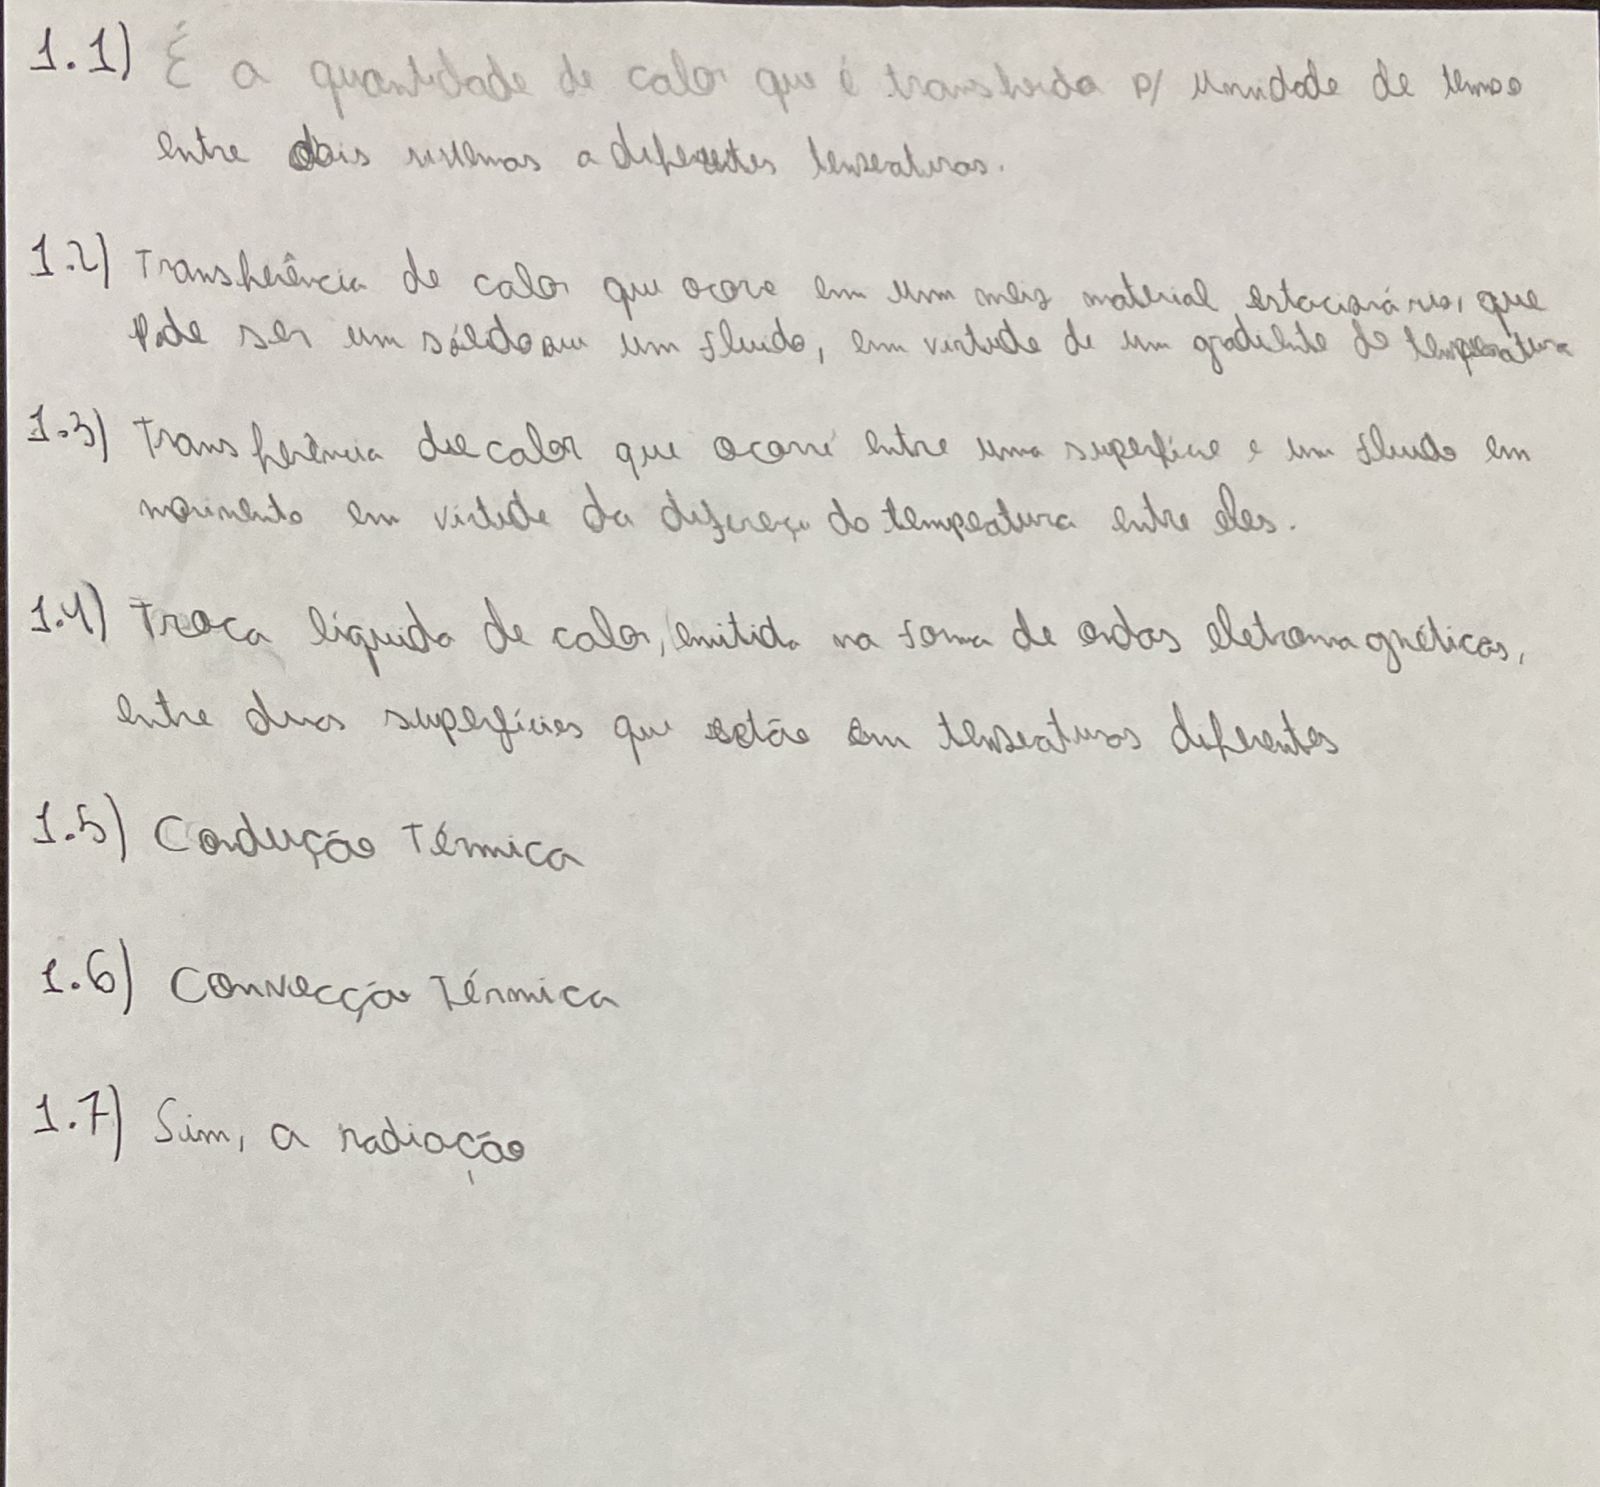 1.1) É a quantidade de calor que é transferida p/ unidade de tempo
entre dois sistemas a diferentes temperaturas.
1.2) Transferência de calor que ocore em um meio material estacionário, que
Pode ser um sólido ou um fluido, em virtude de um gradiente de temperatura
1.3) Transferência de calor que ocorre entre uma superfície e um fluido em
movimento em virtude da diferença de tempeatura entre eles.
1.4) Troca líquida de calor, emitida na forma de ondas eletromagnéticas,
entre duas superfícies que estão em temperaturas diferentes
1.5) Condução Térmica
1.6) Convecção Térmica
1.7) Sim, a radiação